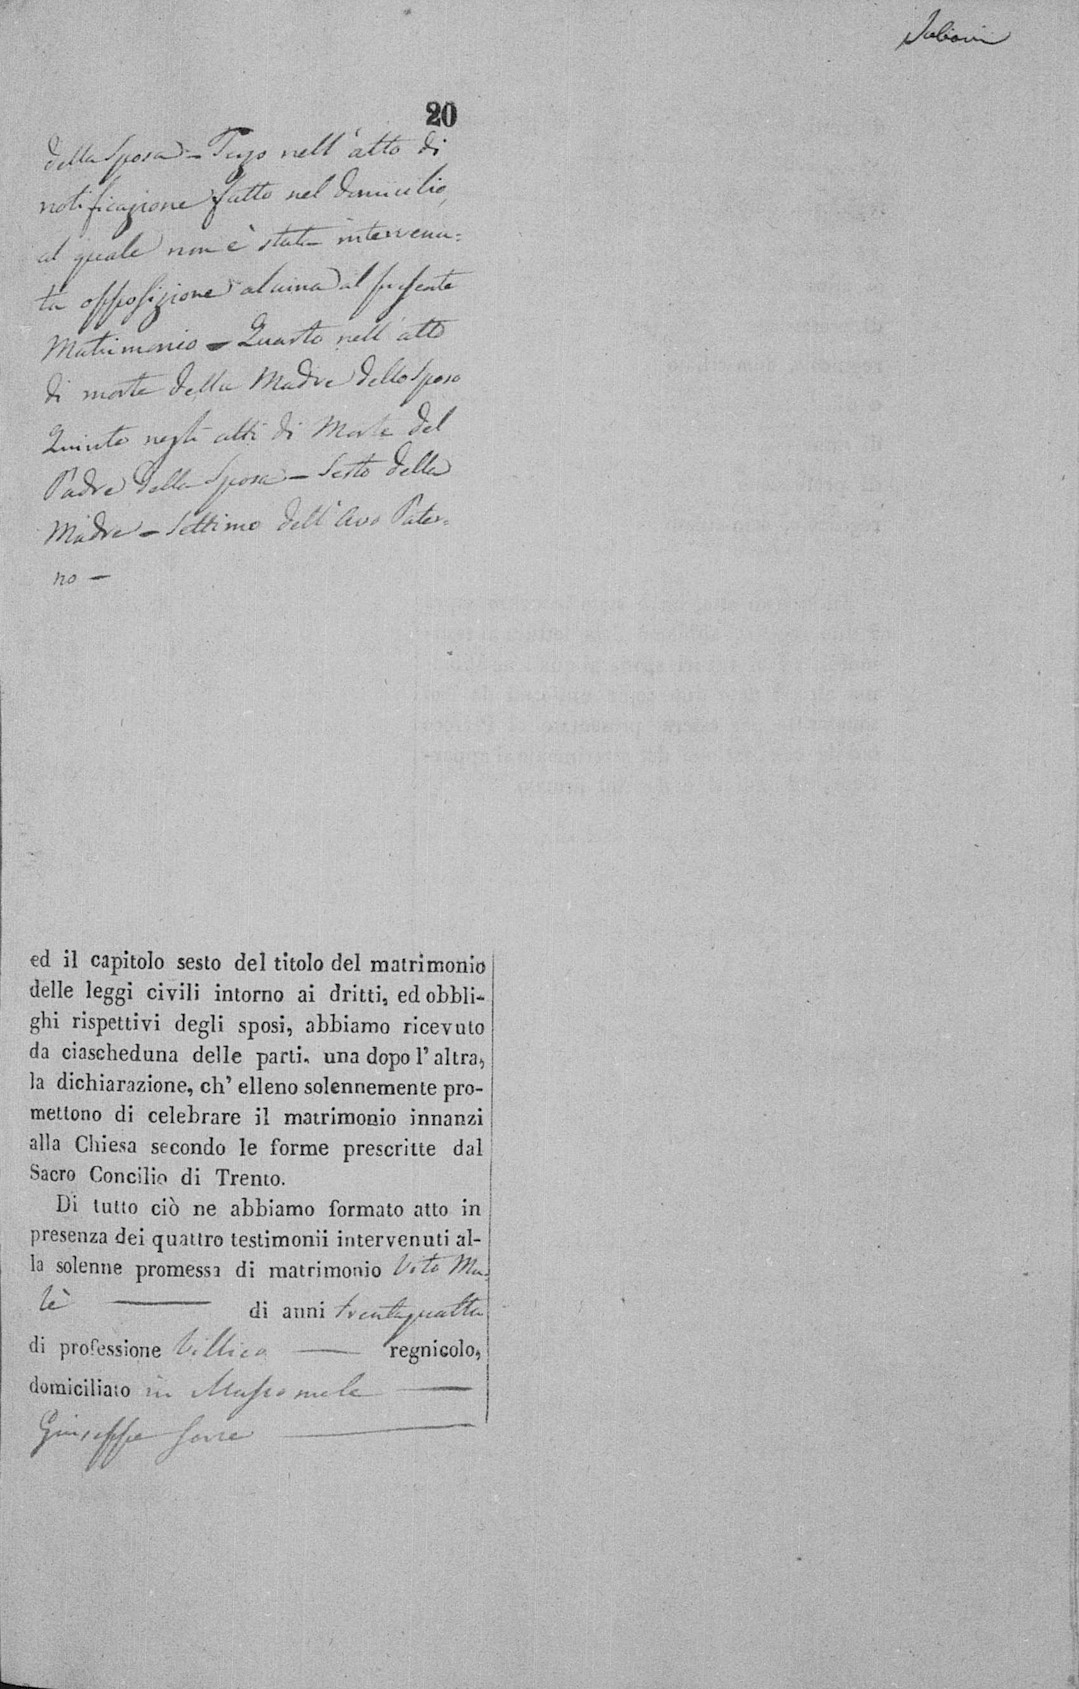 20
della Sposa - Terzo nell'atto di
notificazione fatto nel domicilio,
al quale non è stata intervenu=
ta opposizione alcuna al presente
Matrimonio - Quarto nell'atto
di morte della Madre dello Sposo
Quinto negli atti di Morte del
Padre della Sposa - Sesto della
Madre - Settimo dell'Avo Pater=
no -
ed il capitolo sesto del titolo del matrimonio
delle leggi civili intorno ai dritti, ed obbli-
ghi rispettivi degli sposi, abbiamo ricevuto
da ciascheduna delle parti, una dopo l'altra,
la dichiarazione, ch' elleno solennemente pro-
mettono di celebrare il matrimonio innanzi
alla Chiesa secondo le forme prescritte dal
Sacro Concilio di Trento.
Di tutto ciò ne abbiamo formato atto in
presenza dei quattro testimonii intervenuti al-
la solenne promessa di matrimonio Vito Mu
lè di anni trentaquattro
di professione Villico regnicolo,
domiciliato in
Giuseppe